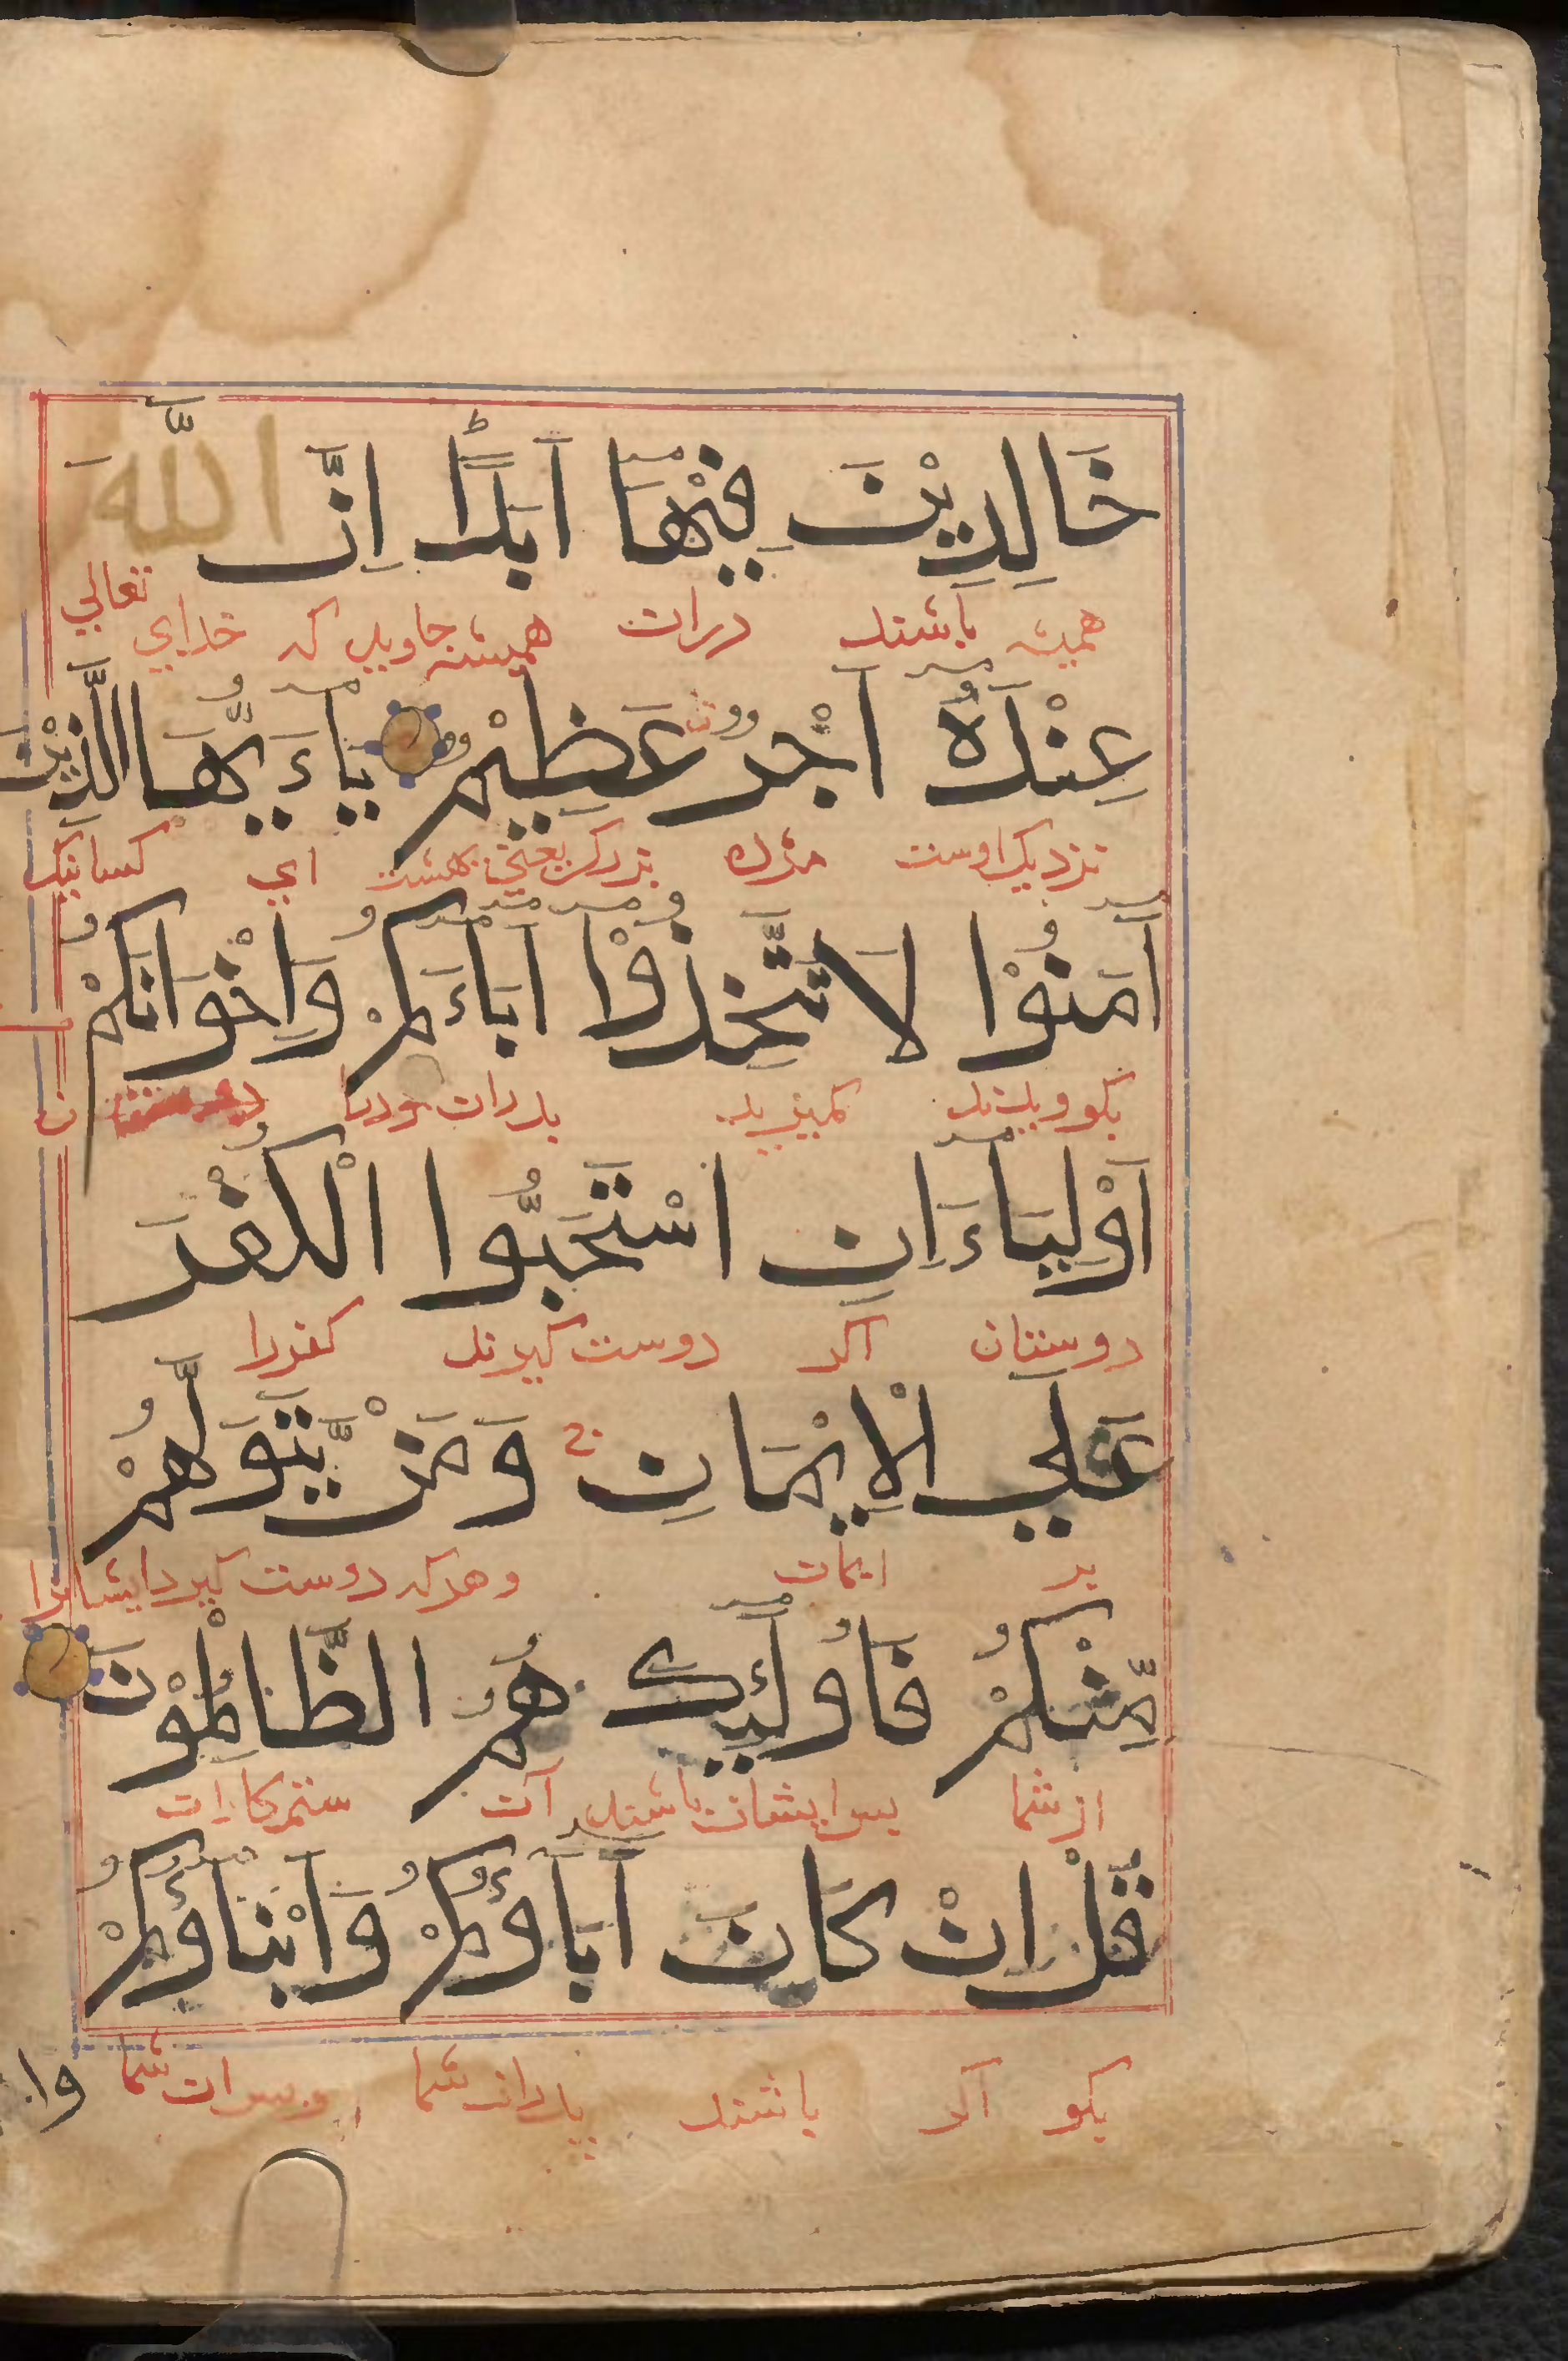 خَالِدِيْنَ فِيْهَا اَبَدًا اِنَّ اللّٰهَ
هميشه باشند دران هميشه جاويد كه خداي تعالي
عِنْدَهٗ اَجْرٌ عَظِيْمٌ يٰاَيُّهَا الَّذِيْنَ
نزديك اوست مزده بزرك يعني بهشت اي كسانيكه
اٰمَنُوْا لَا تَتَّخِذُوْا اٰبَاءَكُمْ وَاِخْوَانَكُمْ
بكرويدند مكيريد پدران
اَوْلِيَاءَ اِنِ اسْتَحَبُّوا الْكُفْرَ
دوستان اكر دوست كيرند كفررا
عَلَي الْاِيْمَانِ وَمَنْ يَّتَوَلَّهُمْ
بر ايمان وهركه دوست كيرد ايشانرا
مِّنْكُمْ فَاُولٰئِكَ هُمُ الظَّالِمُوْنَ
از شما پس ايشان باشند آن ستمكاران
قُلْ اِنْ كَانَ اٰبَاؤُكُمْ وَاَبْنَاؤُكُمْ
بكو اكر باشند پدران شما وپسران شما
وا